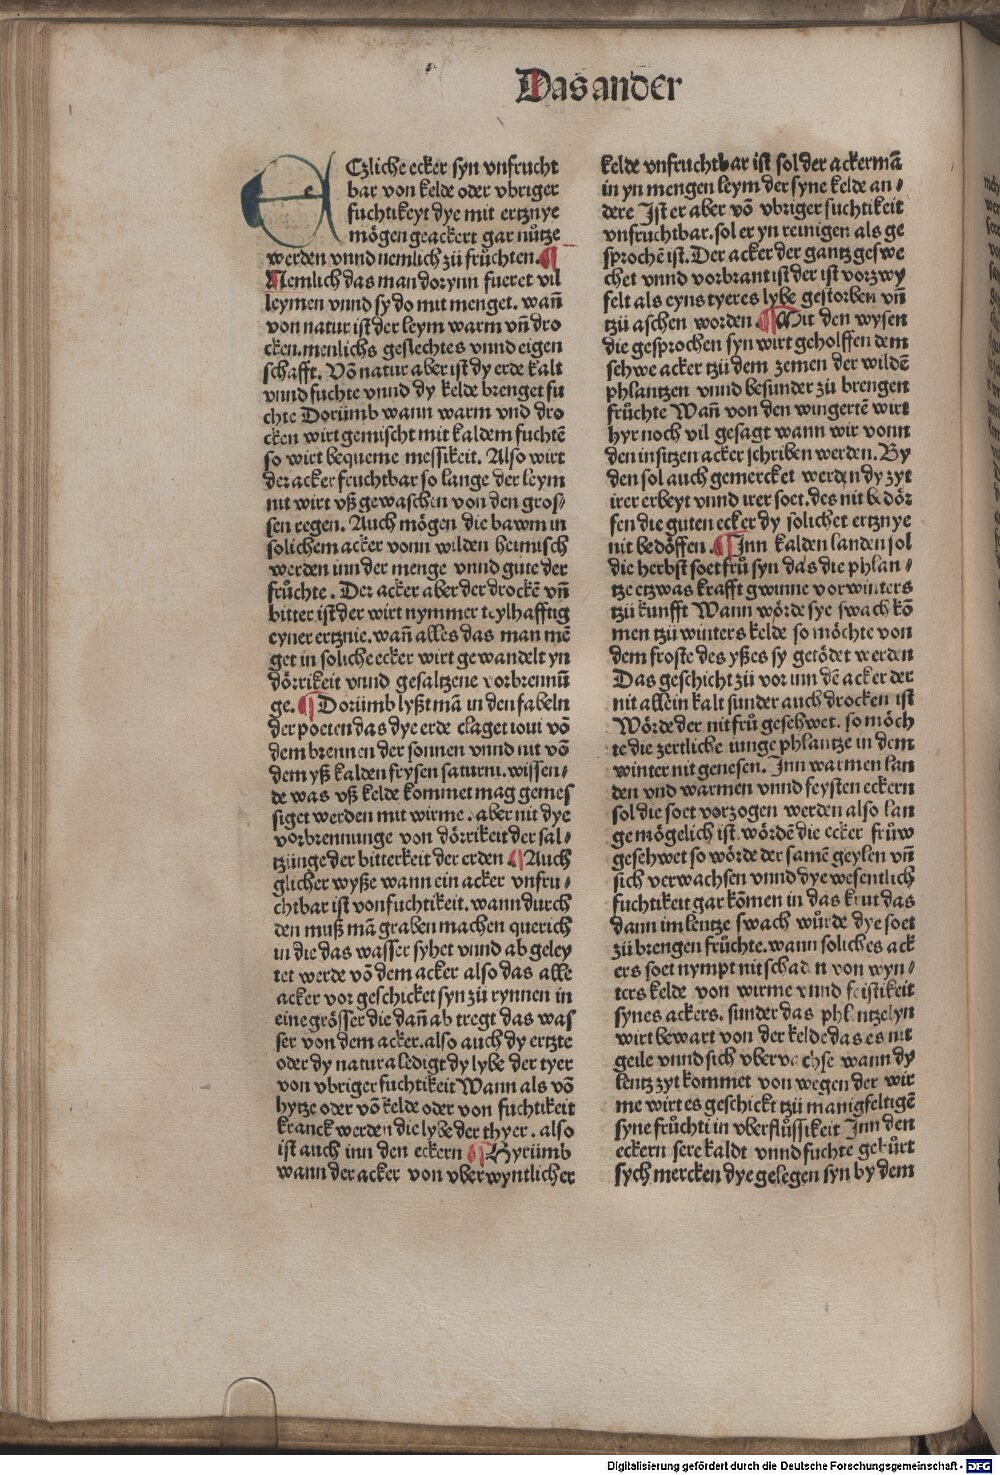 Das ander
ECzliche ecker syn vnfrucht
bar von kelde oder vbriger
fuchtikeyt dye mit ertznye
mögen geackert gar nůtze
werden vnnd nemlich zů frůchten. ¶
Nemlich das man dorynn fueret vil
leymen vnnd sy do mit menget. wañ
von natur ist der leym warm vñ dro
cken. menlichs geslechtes vnnd eigen
schafft. Võ natur aber ist dy erde kalt
vnnd fuchte vnnd dy kelde brenget fu
chte Dorůmb wann warm vnd dro
cken wirt gemischt mit kaldem fuchtẽ
so wirt bequeme messikeit. Also wirt
der acker fruchtbar so lange der leym
nit wirt vß gewaschen von den gros⸗
sen regen. Auch mögen die bawm in
solichem acker vonn wilden heimisch
werden inn der menge vnnd gute der
frůchte. Der acker aber der drockẽ vñ
bitter ist der wirt nymmer teylhafftig
eyner ertznie. wañ alles das man mẽ
get in soliche ecker wirt gewandelt yn
dörrikeit vnnd gesaltzene vorbrennũ
ge. ¶ Dorůmb lyßt mã in den fabeln
der poeten das dye erde claget ioui võ
dem brennen der sonnen vnnd nit võ
dem yß kalden frysen saturni. wissen⸗
de was vß kelde kommet mag gemes
siget werden mit wirme. aber nit dye
vorbrennunge von dörrikeit der sal⸗
tzünge der bitterkeit der erden ¶ Auch
glicher wyße wann ein acker vnfru⸗
chtbar ist von fuchtikeit. wann durch
den muß mã graben machen querich
in die das wasser syhet vnnd ab geley
tet werde võ dem acker also das alle
acker vor geschicket syn zů rynnen in
eine grösser die dañ ab tregt das was
ser von dem acker. also auch dy ertzte
oder dy natura ledigt dy lybe der tyer
von vbriger fuchtikeit Wann als võ
hytze oder võ kelde oder von fuchtikeit
kranck werden die lybe der thyer. also
ist auch inn den eckern ¶ Hyrümb
wann der acker von vberwyntlicher
kelde vnfruchtbar ist sol der ackermã
in yn mengen leym der syne kelde an⸗
dere Ist er aber võ vbriger fuchtikeit
vnfruchtbar. sol er yn reinigen als ge
sprochẽ ist. Der acker der gantz geswe
chet vnnd vorbrant ist der ist vorzwy
felt als eyns tyeres lybe gestorben vñ
tzů aschen worden ¶ Mit den wysen
die gesprochen syn wirt geholffen dem
sehwe acker tzů dem zemen der wildẽ
phlantzen vnnd besunder zů brengen
frůchte Wañ von den wingertẽ wirt
hyr noch vil gesagt wann wir vonn
den insitzen acker schriben werden. By
den sol auch gemercket werden dy zyt
irer erbeyt vnnd irer soet. des nit bedör
fen die guten ecker dy solichet ertznye
nit bedöffen. ¶ Inn kalden landen sol
die herbst soet frů syn das die phlan⸗
tze etzwas krafft gwinne vor winters
tzů kunfft Wann wörde sye swach kõ
men tzů winters kelde so möchte von
dem froste des yßes sy getödet werden
Das geschicht zů vor inn dẽ acker der
nit allein kalt sunder auch drocken ist
Wörde der nit frů gesehwet. so möch
te die zertliche iunge phlantze in dem
winter nit genesen. Inn warmen lan
den vnd warmen vnnd feysten eckern
sol die soet vorzogen werden also lan
ge mögelich ist. wördẽ die ecker frůw
gesehwet so wörde der samẽ geylen vñ
sich verwachsen vnnd dye wesentlich
fuchtikeit gar kõmen in das krut das
dann im lentze swach wůrde dye soet
zů brengen frůchte. wann soliches ack
ers soet nympt nit schaden von wyn⸗
ters kelde von wirme vnnd feistikeit
synes ackers. sunder das phlentzelyn
wirt bewart von der kelde das es nit
geile vnnd sich vberwachse wann dy
lentz zyt kommet von wegen der wir
me wirt es geschickt tzů manigfeltigẽ
syne frůchti in vberflůssikeit Inn den
eckern sere kaldt vnnd fuchte gebůrt
sych mercken dye gelegen syn by dem
Digitalisierung gefördert durch die Deutsche Forschungsgemeinschaft - DFG